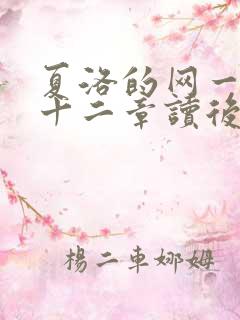 夏洛的网一
十二章讀後
楊二車娜姆